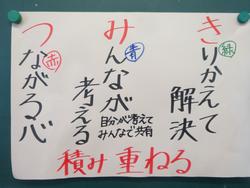 きりかえて
緑
解決
みんなが
青
考える
自分が考えて
みんなで共有
つながる心
赤
積み重ねる